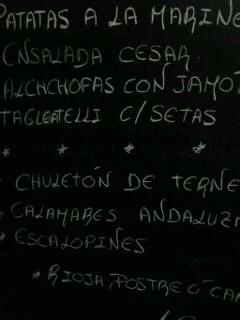 PATATAS A LA MARINE
ENSALADA CESAR.
ALCHCHOFAS CON JAMO
TAGLEATELLI C/SETAS
* * * *
CHULETÓN DE TERNE
* CALAMARES ANDALUZ
* ESCALOPINES
* RIOJA, POSTRE Ó CA